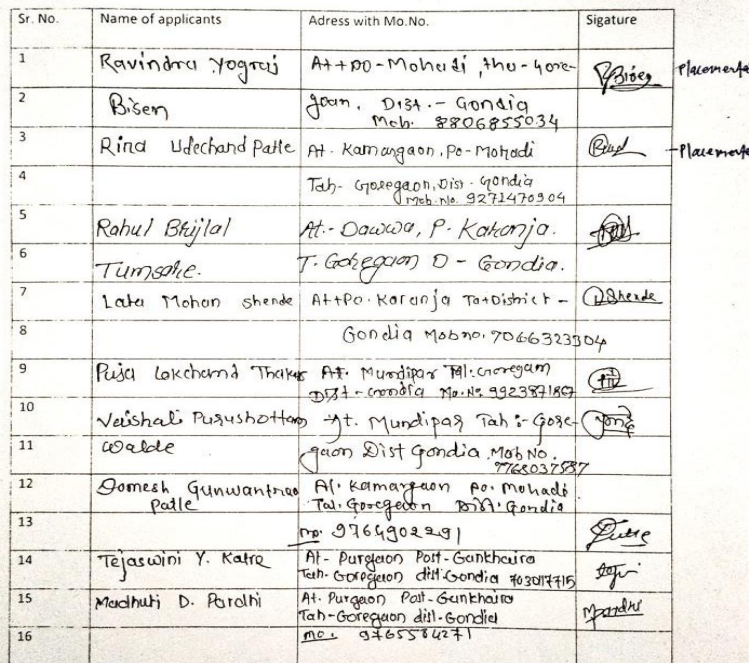 Sr. No. Name of applicants Adress with Mo.No. Sigature
1 Ravindra Yograj At+po-Mohadi, tha-Gore- Bisen Placements
2 Bisen gaon, Dist.- Gondia
Mob. 8806855034
3 Rina Udechand Patle At. Kamargaon, Po-Mohadi Placements
4 Tah- Goregaon, Dist- Gondia
Mob. No. 9271470904
5 Rahul Brijlal At.- Dawwa, P. Karanja.
6 Tumsare. T. Goregaon D - Gondia.
7 Lata Mohan shende At+Po. Karanja Ta+District - LShende
8 Gondia Mob no. 7066323304
9 Puja Lokchand Thakur At. Mundipar Tal. Goregaon
Dist - Gondia Mo. No. 9923871867
10 Vaishali Purushottam At. Mundipar Tah :- Gore-
11 Walde gaon Dist Gondia Mob No.
7768037537
12 Somesh Gunwantrao At. Kamargaon Po. Mohadi
Patle Tal. Goregaon Dist. Gondia
13 mo. 9764902291
14 Tejaswini Y. Katre At- Purgaon Post-Gankhaira
Tah- Goregaon dist-Gondia 7030117715
15 Madhuti D. Pardhi At. Purgaon Post-Gankhaira
Tah-Goregaon dist-Gondia
16 mo. 9765584271